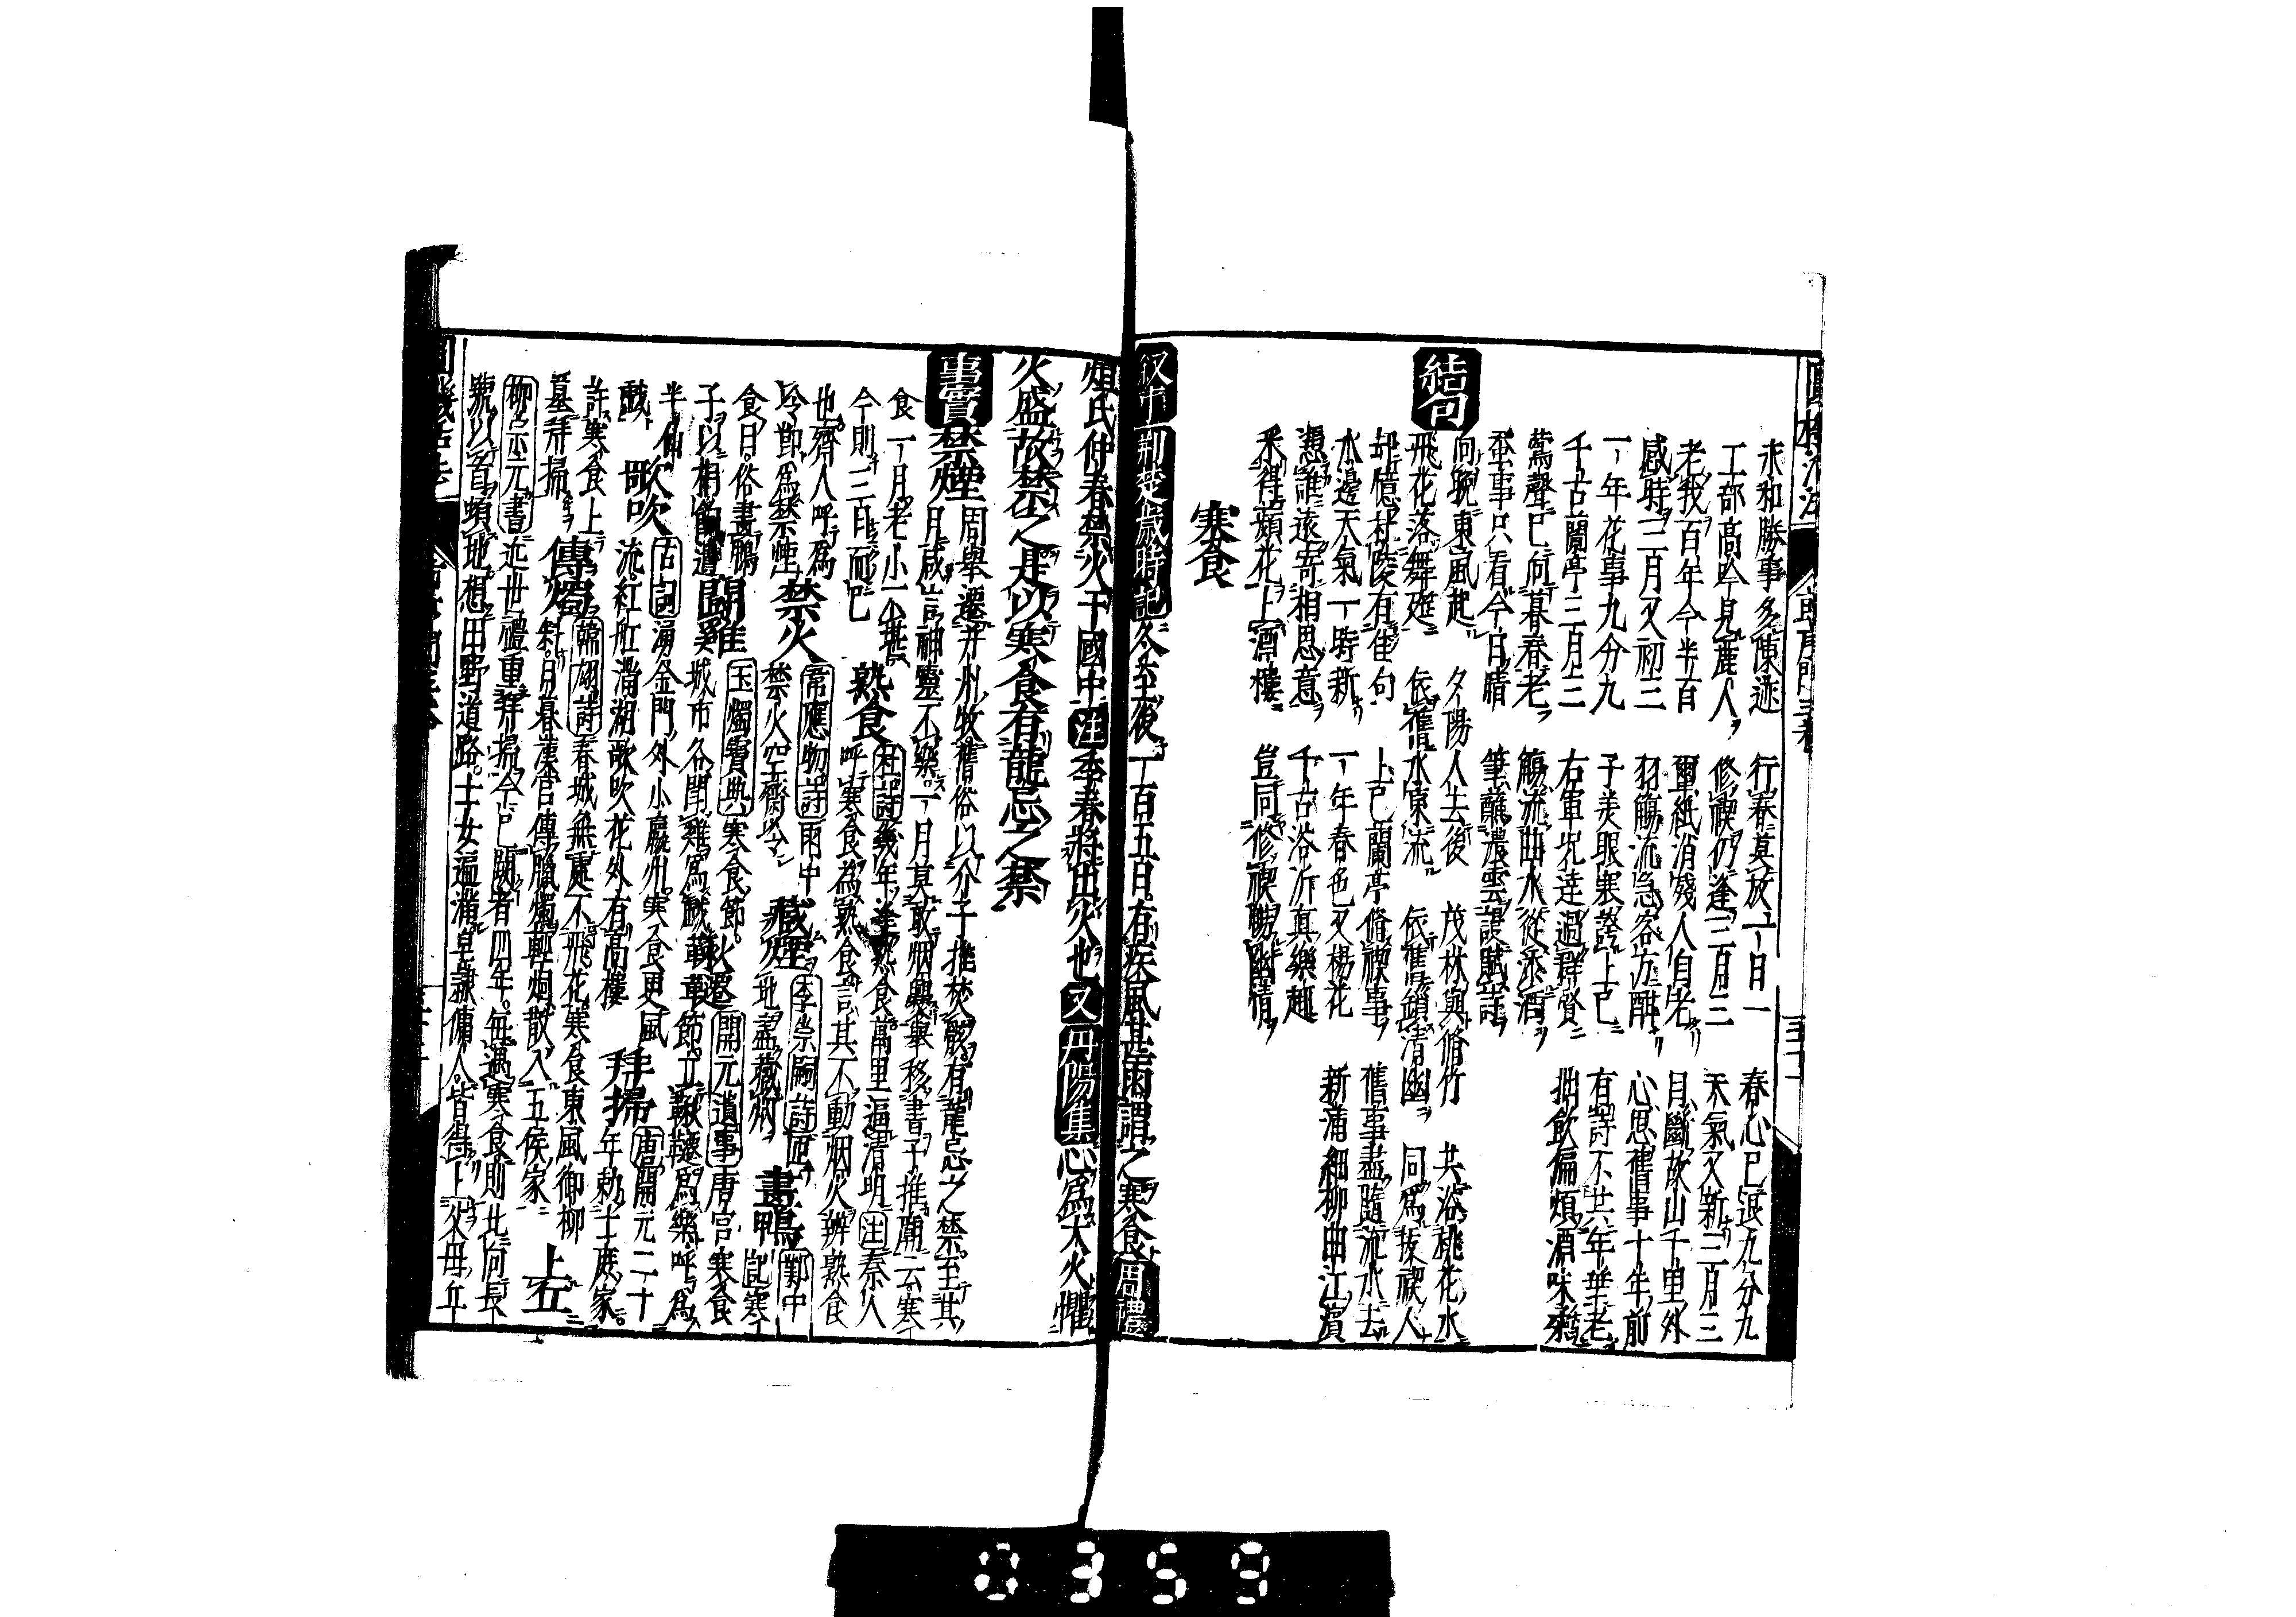 永和勝事多陳迹　行春莫放一日一　春心已逐九分九
工部高吟見麗人　修禊仍逢三月三　天氣又新三月三
老我百年今半百　蠒紙消殘人自老　目斷故山千里外
感時三月又初三　羽觴流急客方酣　心思舊事十年前
一年花事九分九　子美眼寒
千古蘭亭三月三　右軍
鶯聲已向暮春老　觴流曲水從添酒　有詩不共年華老
蚕事只看今日晴　筆蘸濃雲謾賦詩　拙飲偏煩酒味
結句
向晚東風起　夕陽人去後　茂林與脩竹　共浴桃花水
飛花落舞筵　依舊水東流　依舊鎖清幽　同爲祓禊人
却憶杜陵有佳句　上巳蘭亭脩禊事　舊事盡隨流水去
水邊天氣一時新　一年春色又楊花　新蒲細柳曲江濱
憑誰遠寄相思意　千古浴沂真樂趣
采得蘋花上酒樓　豈同修禊暢幽情
寒食
叙事 荆楚歲時記 冬至後一百五日有疾風甚雨謂之寒食 周禮
烜氏仲春禁火于國中 注 季春將出火也 又 丹陽集 心爲大火懼
火盛故禁之是以寒食有龍忌之禁
事實 禁煙 周舉遷并州牧舊俗以介子推焚骸有龍忌之禁至其
月咸言神靈不樂一月莫敢烟爨舉移書子推廟云寒
食一月老小不堪
今則三日而已 熟食 杜詩 幾年逢熟食萬里逼清明 注 秦人
呼寒食為熟食言其不動烟火辨熟食
也齊人呼爲
冷節爲禁煙 禁火 韋應物詩 雨中
禁火空齋冷 藏煙 李崇嗣詩 匝
地盡藏烟 畫鴨 鄴中
記寒
食日俗畫鴨
子以相餉遺 鬪雞 玉燭寶典 寒食節
城市多鬪雞爲戲 鞦韆 開元遺事 唐宮寒食
節立鞦韆爲樂呼爲
半仙
戲 歌吹 古詞 湧金門外小瀛州寒食更風
流紅舡滿湖歌吹花外有高樓 拜掃 唐開元二十
年勅士庶家
許寒食上
墓拜掃 傳燭 韓翃詩 春城無處不飛花寒食東風御柳
斜日暮漢宮傳臘燭輕烟散入五侯家 上丘
柳宗元書 近世禮重拜掃今已闕者四年每遇寒食則北向長
號以首頓地想田野道路士女遍滿皂隷傭人皆得上父母丘
0359